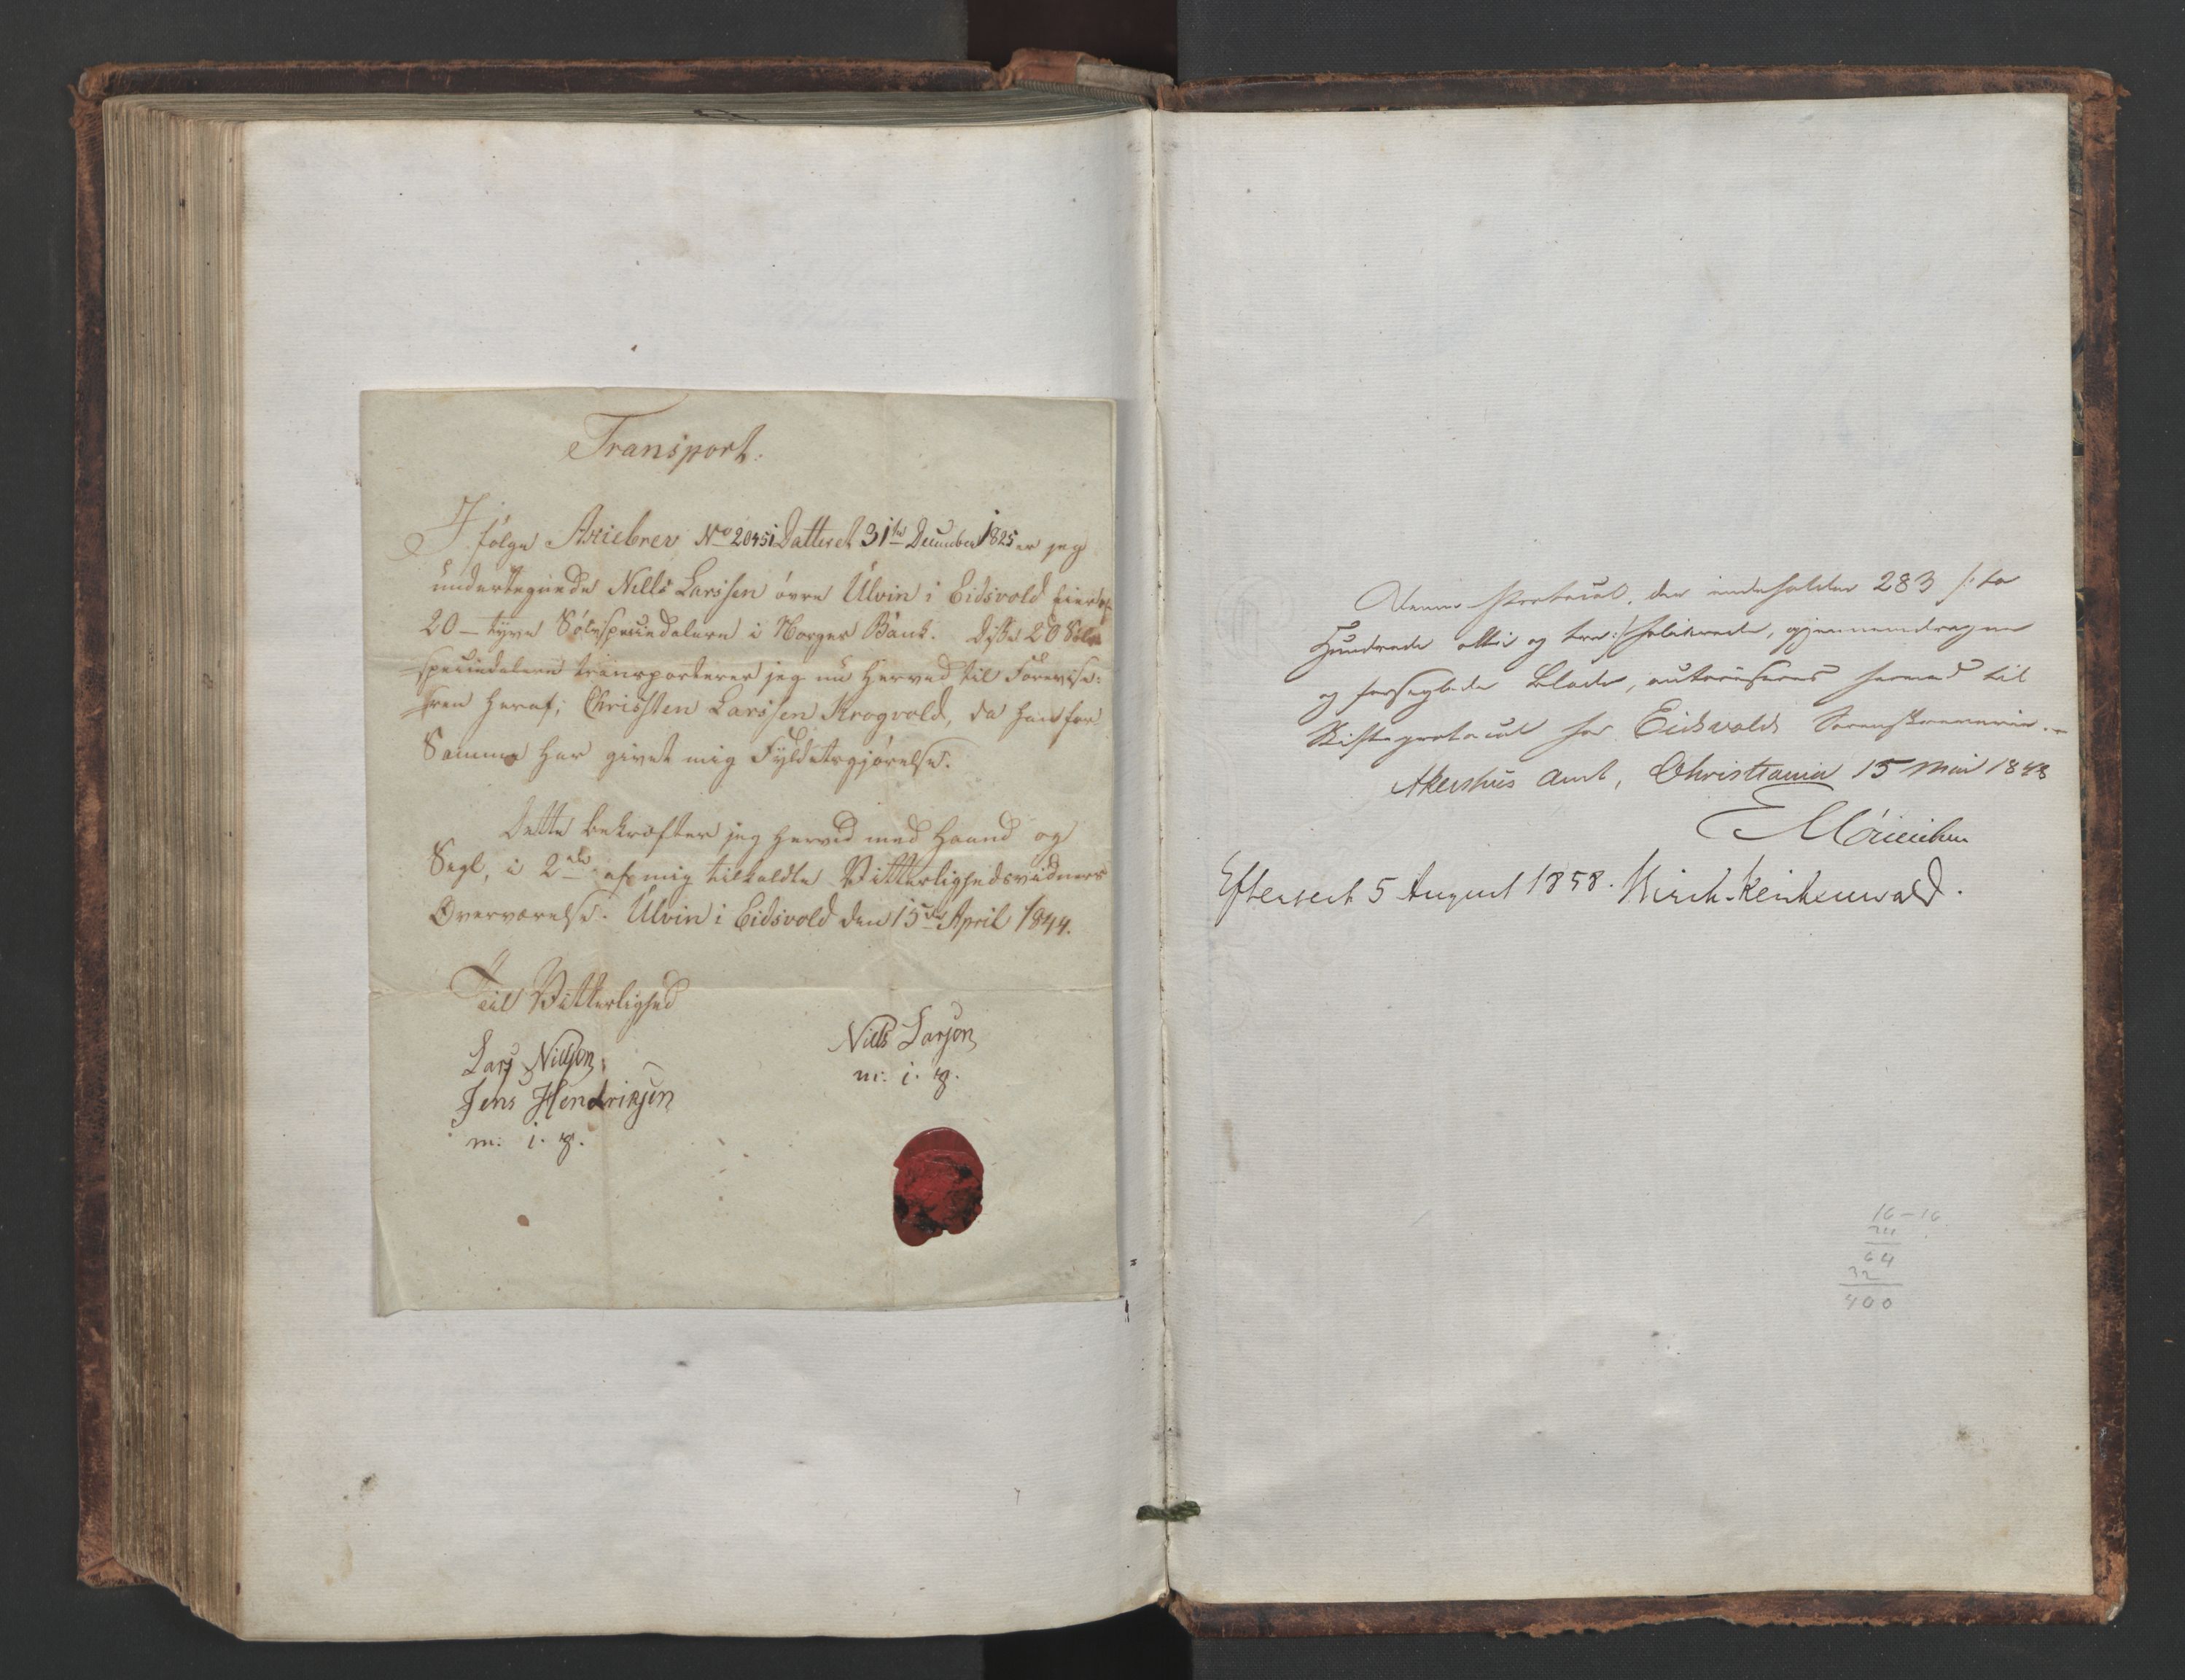 Transport.
I følge Actiebrev No 20451 Datteret 31te December 1825 er jeg
undertegnede Nills Larssen övre Ulvin i Eidsvold eier af
20 – tyve Sølvspeciedalere i Norges Bank. Disse 20 Sølv
speciedalere transporterer jeg nu herved til Forevise-
ren heraf; Christen Larssen Krogvold, da han for
Samme har givet mig Fyldestgjørelse.
Dette bekræfter jeg herved med Haand og
Segl, i 2de af mig tilkaldte Vitterlighedsvidners
Overværelse. Ulvin i Eidsvold den 15de April 1844.
Til Vitterlighed
Lars Nilsen
Jens Hendriksen
m. i. P.
Niels Larsen
m. i. P.
Denne Protocol, der indeholder 283 /: to
Hundrede otti og tre :/ folierede, gjennemdragne
og forseglede Blade, autoriseres herved til
Skifteprotocol for Eidsvolds Sorenskriveri.
Akershus Amt, Christiania 15 Mai 1848
Efterseet 5 August 1858. Birch-Reichenwald.
16 – 16
24
64
32
400